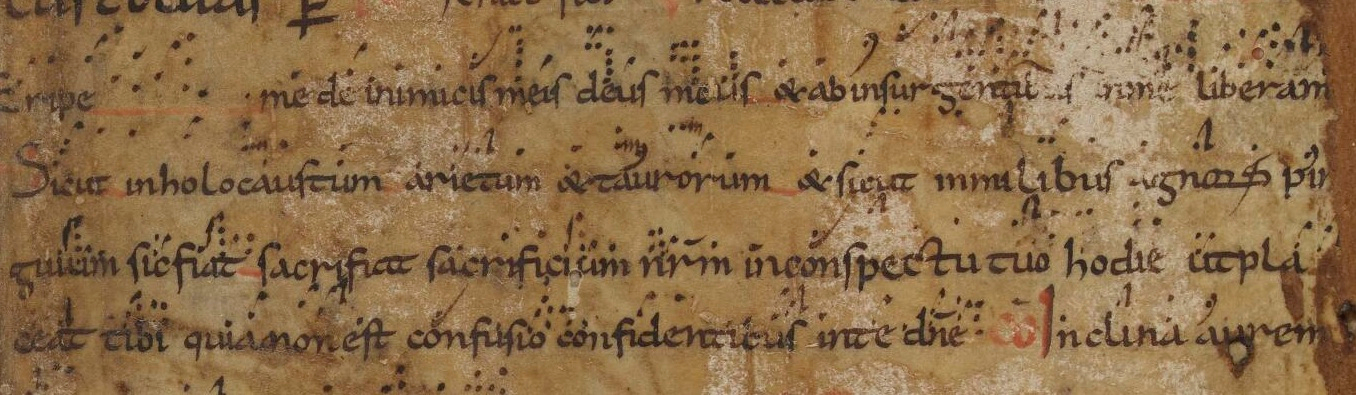 Eripe me de inimicis meis deus meus & ab insurgentib; in me libera m
Sicut in holocaustum arietum & taurorum & sicut in milibus agnorꝝ pin
guium sic fiat sacrificii sacrificium nr̄m in conspectu tuo hodie ut pla
ceat tibi quia non est confusio confidentibus in te dn̄e Co Inclina aurem